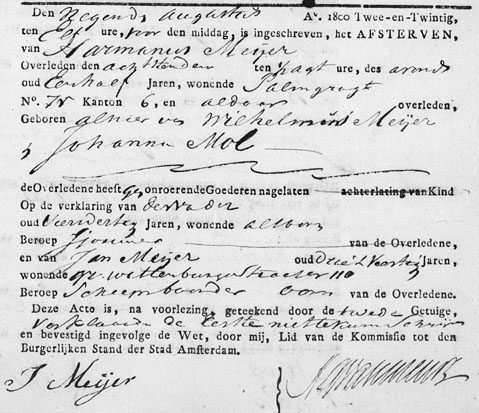 Den Negende Augustus A°. 1800 Twee-en-Twintig,
ten ure, voor den middag, is ingeschreven, het AFSTERVEN,
van Harmanus Meijer
Overleden den achtsten dezer ten ure, des avonds
oud Eenhalf Jaren, wonende Palmgragt
N°. 75 Kanton 6, en aldaar overleden,
Geboren alhier van Wilhelmus Meijer
Johanna Mol
de Overledene heeft geen onroerende Goederen nagelaten achterlating van Kind
Op de verklaring van de vader
oud Jaren, wonende als boven
Beroep Sjouwer van de Overledene,
en van Jan Meijer oud Jaren,
wonende 110
Beroep oom van de Overledene.
Deze Acte is, na voorlezing, geteekend door de tweede Getuige,
verklarende de Eerste niet te kunnen Schrijven
en bevestigd ingevolge de Wet, door mij, Lid van de Kommissie tot den
Burgerlijken Stand der Stad Amsterdam.
J Meijer